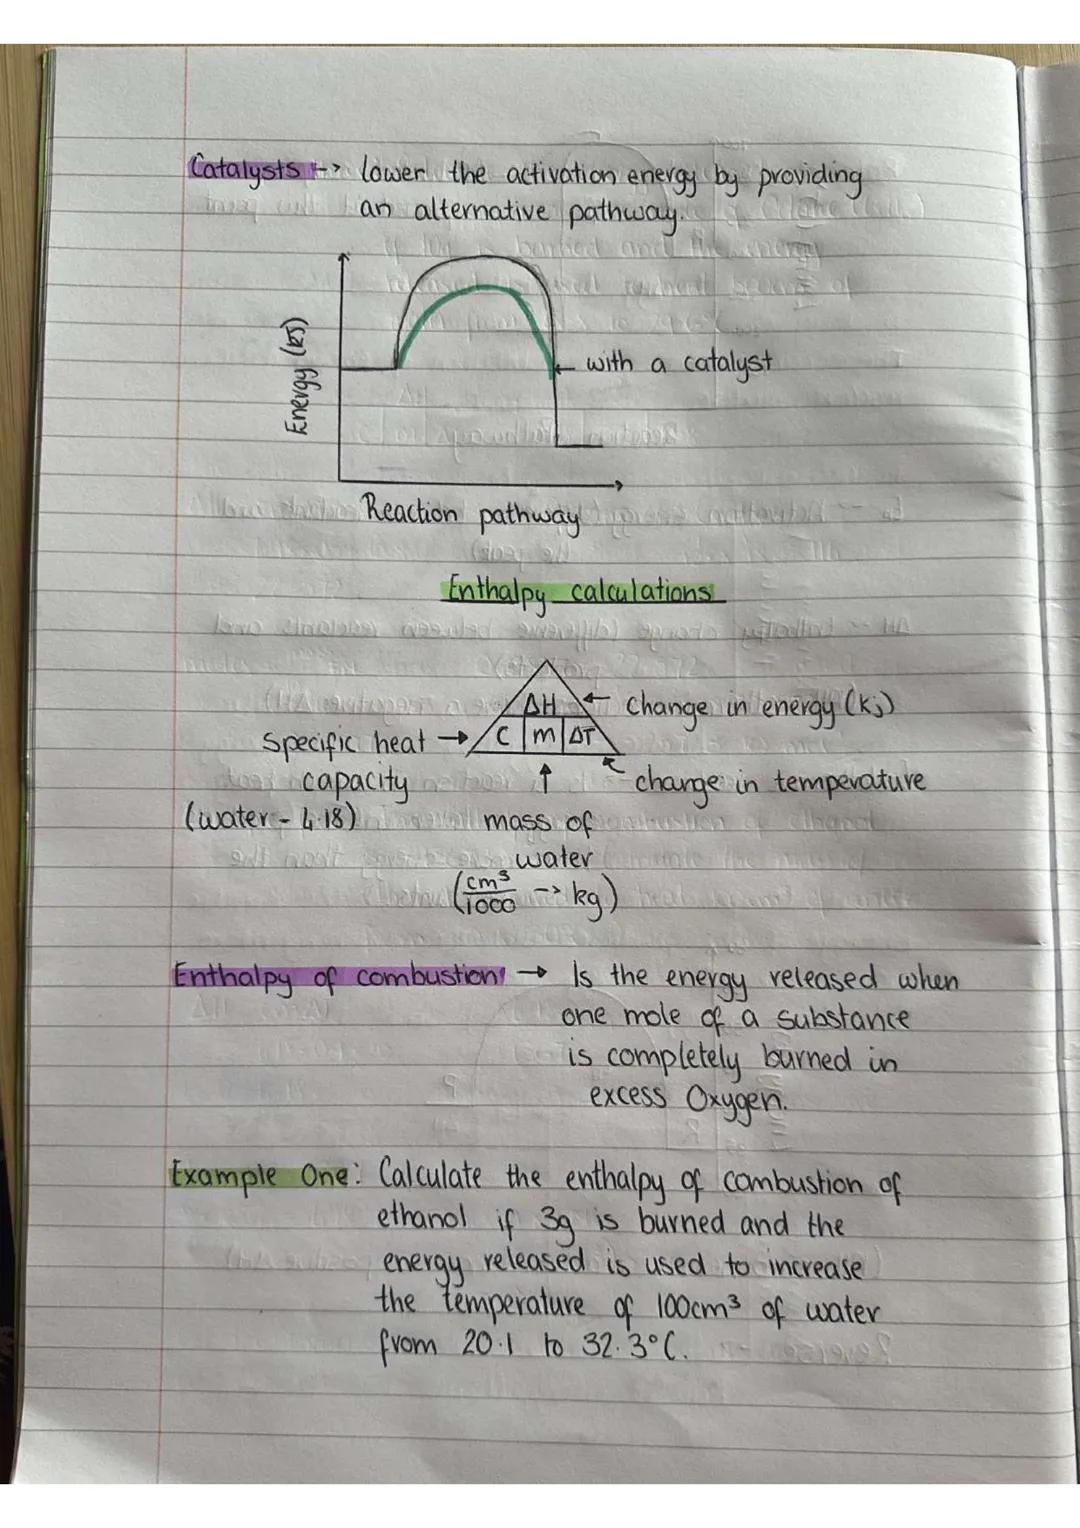 Catalysts -> lower the activation energy by providing
an alternative pathway.
Energy (kJ)
with a catalyst
Reaction pathway
Enthalpy calculations
ΔH ← Change in energy (kj)
Specific heat → C m ΔT
capacity ↑ change in temperature
(water - 4.18) mass of
water
(cm³/1000 -> kg)
Enthalpy of combustion → Is the energy released when
one mole of a substance
is completely burned in
excess Oxygen.
Example One: Calculate the enthalpy of combustion of
ethanol if 3g is burned and the
energy released is used to increase
the temperature of 100cm³ of water
from 20.1 to 32.3°C.